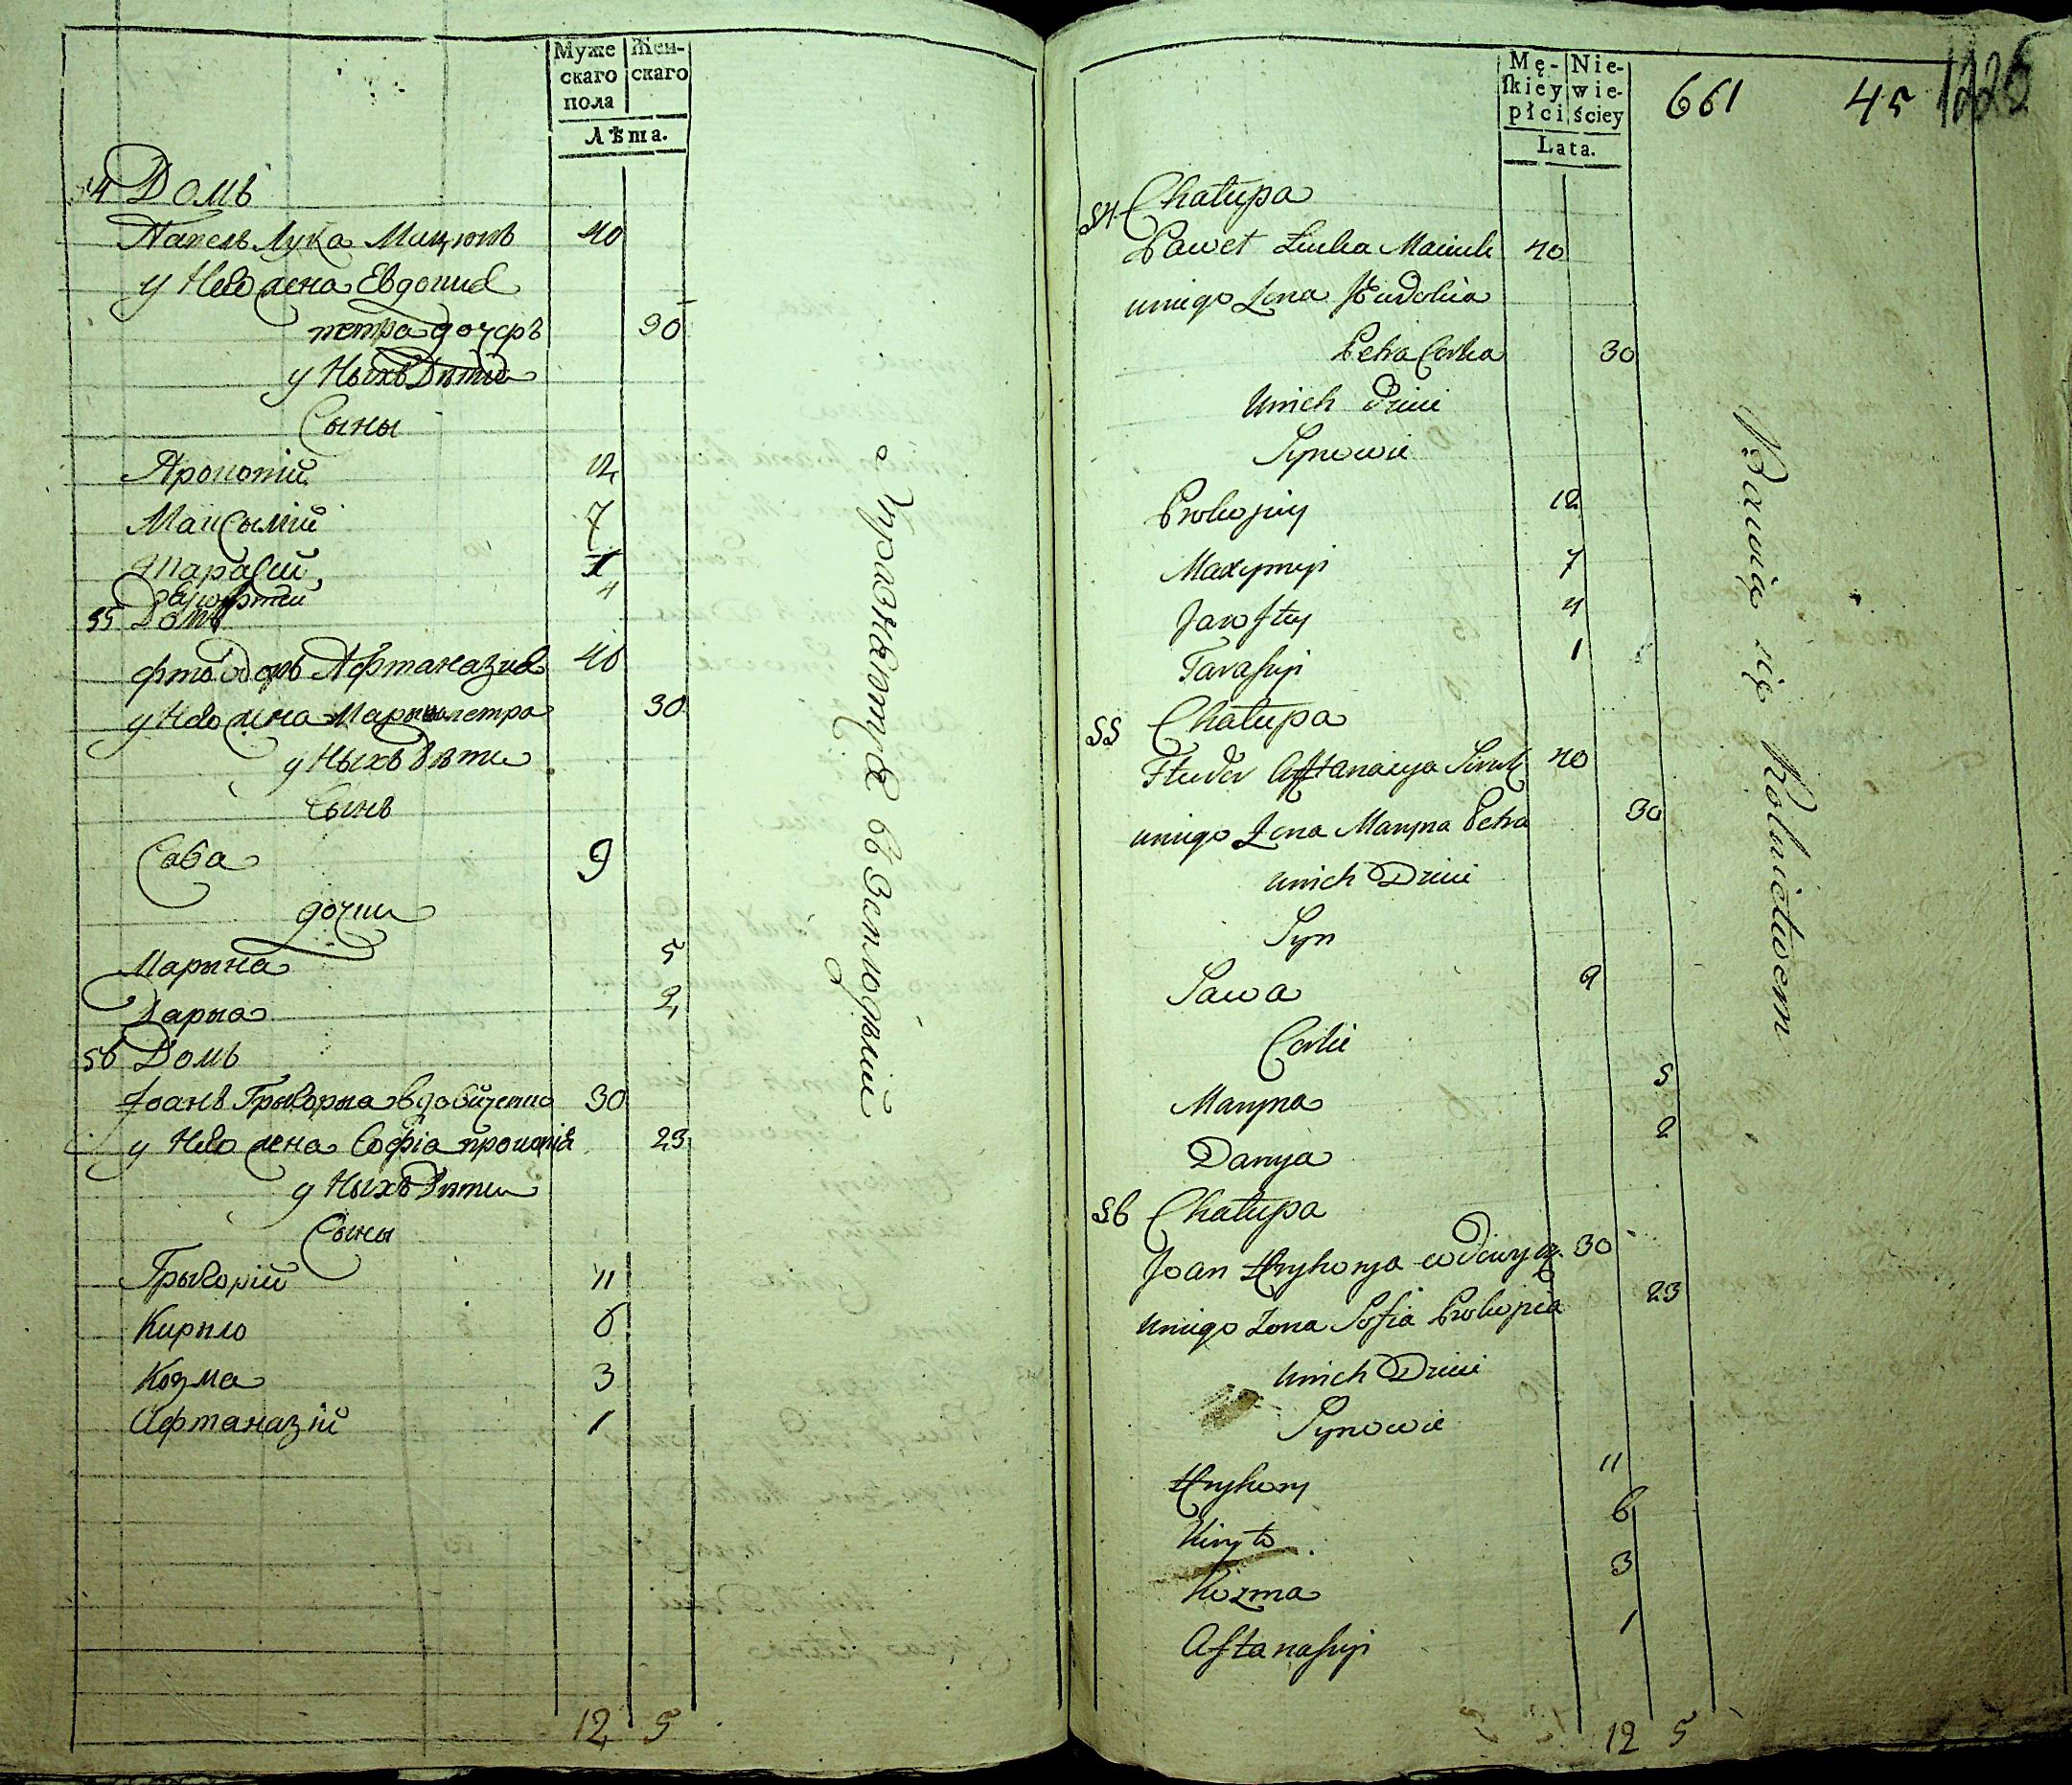 Муже
скаго
пола
Жен-
скаго
Лѣта.
54 Домъ
Павелъ Лука Мацюкъ 40
у Него жена Евдокия
петра дочерь 30
у Ныхъ Дѣти
Сыны
Прокопій 12
Максымій 7
Тарасий 1
4
55 Домъ
Афтаназия 40
у Него жена Марына петра 30
у Ныхъ Дѣти
Сынъ
Сава 9
дочки
Марына 5
Дарыа 2
56 Домъ
Іоанъ Грыгорыа 30
у Него жена Софіа прокопіа 23
у Ныхъ Дѣти
Сыны
Грыгорій 11
Кирыло 6
Козма 3
Афтаназій 1
12 5
Упражняются в Земледѣлии
Mę-
ſkiey
płci
Nie-
wie-
ściey
Lata.
661 45 1226
54 Chałupa
Paweł Łuka Maciuk 40
uniego Żona Eudokia
Petra Corka 30
Unich Dzieci
Synowie
Prokopiy 12
Maxymiji 7
Jawsty 4
Tarasyji 1
55 Chałupa
Fteder Aftanazya 40
uniego Żona Maryna Petra 30
unich Dzieci
Syn
Sawa 9
Corki
Maryna 5
Darya 2
56 Chałupa
Joan Hryhorya 30
uniego Żona Sofia Prokopia 23
unich Dzieci
Synowie
Hryhory 11
Kiryło 6
Kozma 3
Aftanasyji 1
12 5
Bawią się Rolnictwem